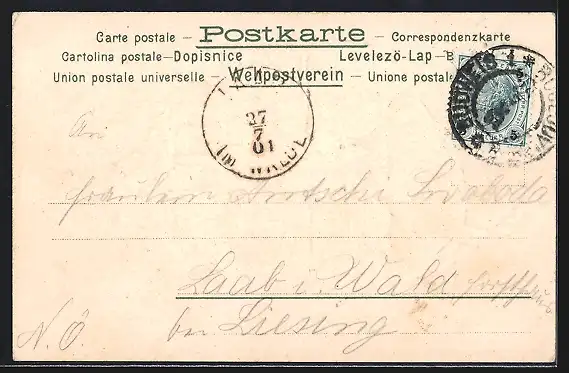 Carte postale – Postkarte – Correspondenzkarte
Cartolina postale – Dopisnice Levelezö-Lap –
Union postale universelle – Weltpostverein – Unione postale
27
7
01
An
Fräulein Svoboda
Laab i. Wald Forsthaus
N. Ö. bei Liesing